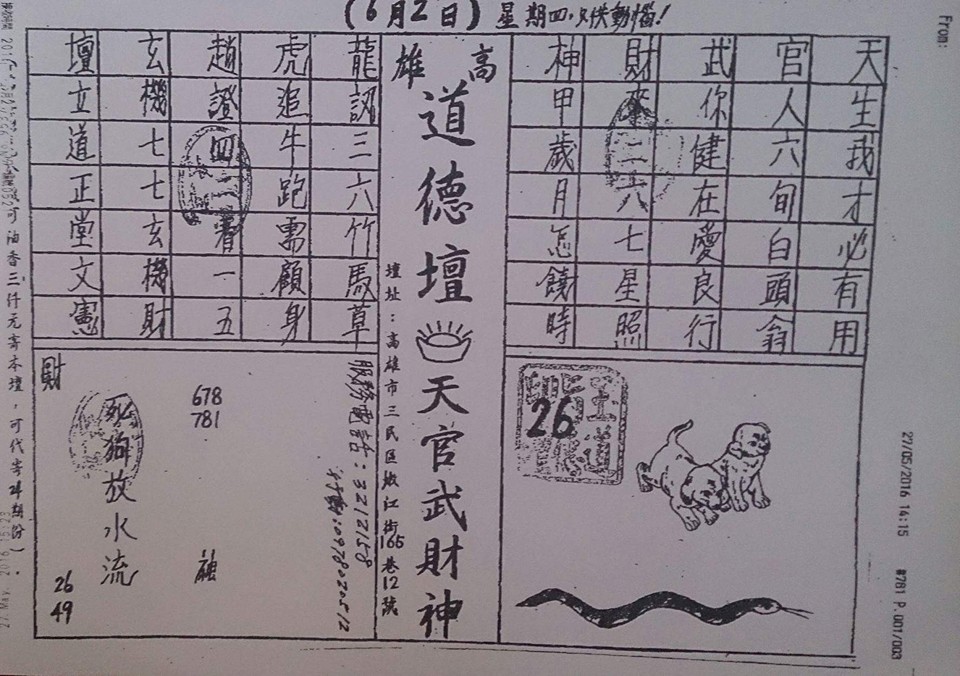 (6月2日) 星期四，只供動惱！
From:
27/05/2016 14:15 #781 P.001/003
天生我才必有用
官人六旬白頭翁
武你健在愛良行
財來二六七星照
神甲歲月怎饒時
26
高雄
道德壇
天官武財神
壇址：高雄市三民區嫩江街165巷12號
龍認三六竹馬草
虎追牛跑需顧身
趙證四二看一五
玄機七七玄機財
壇立道正堂文憲
服務電話：3212158
行動：0978020512
678
781
死狗放水流
財
26
49
可油香三仟元寄本壇，可代寄4期份）.
27.May. 2016 15:23